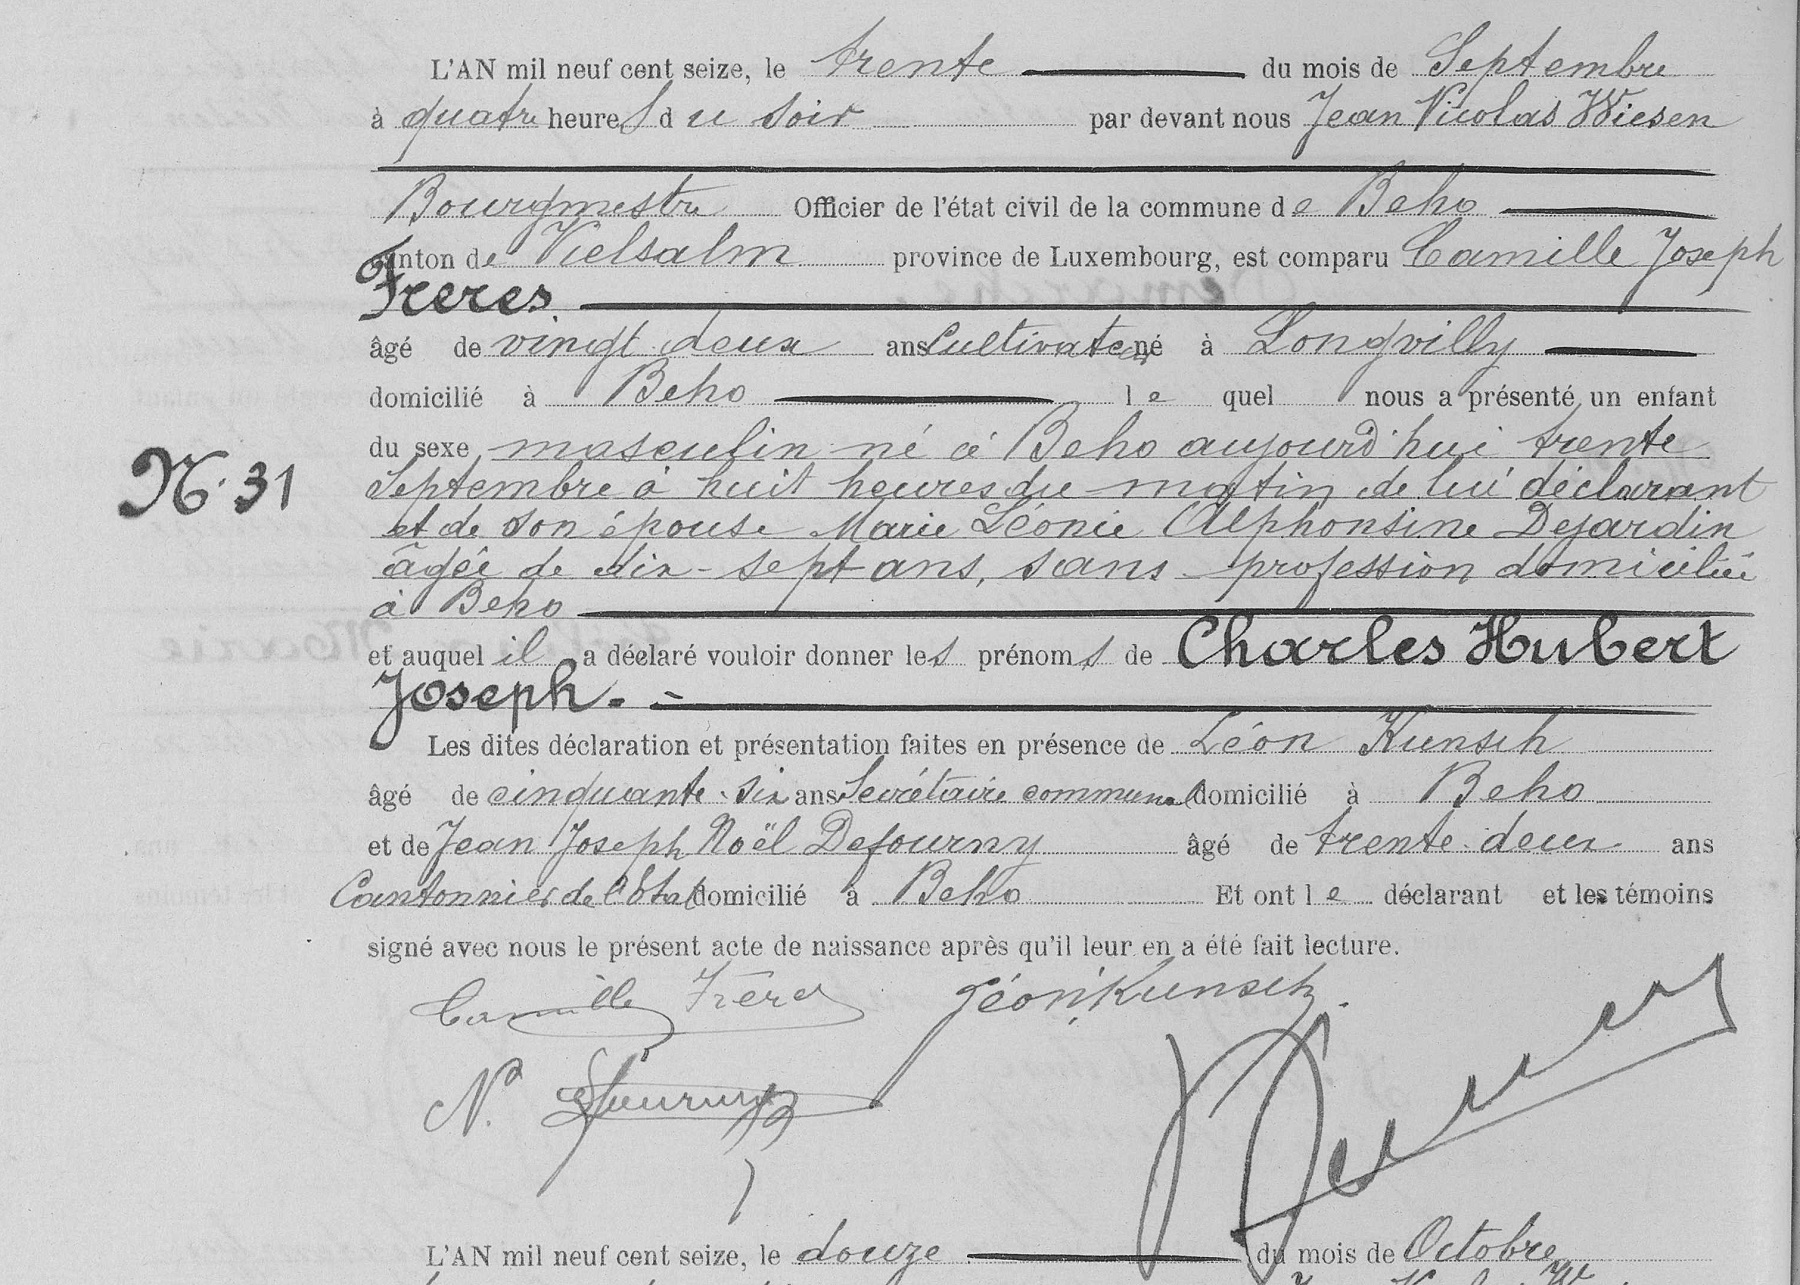 L'AN mil neuf cent seize, le trente du mois de Septembre
à quatre heures du soir par devant nous Jean Nicolas Wiesen
Bourgmestre Officier de l'état civil de la commune de Beho
canton de Vielsalm province de Luxembourg, est comparu Camille Joseph
Freres
âgé de vingt deux ans Cultivateur né à Longvilly
domicilié à Beho lequel nous a présenté un enfant
du sexe masculin né à Beho aujourd'hui trente
Septembre à huit heures du matin de lui déclarant
et de son épouse Marie Léonie Alphonsine Dejardin
âgée de dix-sept ans, sans profession domiciliée
à Beho
N. 31
et auquel il a déclaré vouloir donner les prénoms de Charles Hubert
Joseph. -
Les dites déclaration et présentation faites en présence de Léon Kunsch
âgé de cinquante-six ans Secrétaire communal domicilié à Beho
et de Jean Joseph Noël Defourny âgé de trente-deux ans
Cantonnier de l'Etat domicilié à Beho Et ont le déclarant et les témoins
signé avec nous le présent acte de naissance après qu'il leur en a été fait lecture.
Camille Freres Léon Kunsch.
N. Defourny
L'AN mil neuf cent seize, le douze du mois de Octobre